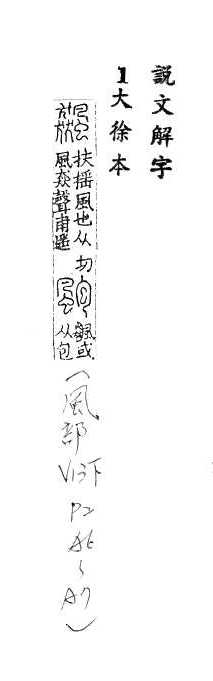 説文解字
1大徐本
飆 扶搖風也从
風猋聲甫遥
切 颮 飆或
从包
(風部
V13下
P2
A6
〜
A7)